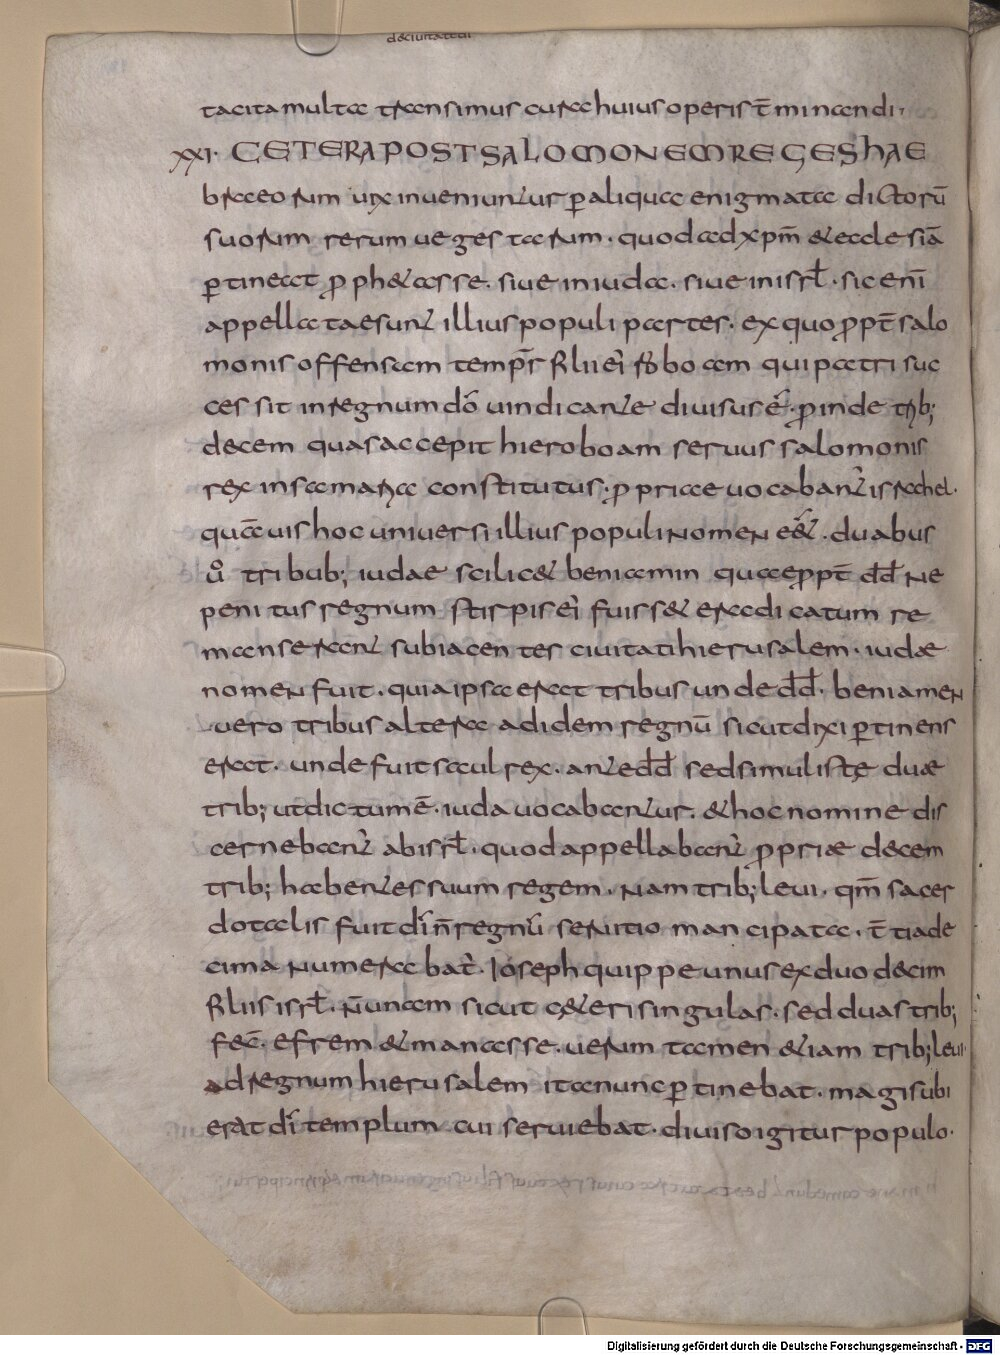 de ciuitate di
tacita multa transimus cura huius operis t̄minandi.
XXI. CETERA POST SALOMONEM REGES HAE
braeorum uix inueniuntur p̄ aliquaa enigmata dictorū
suorum rerumue gestarum. quod ad xp̄m & ecclesiā
p̄tineat p̄ph&asse. siue in iuda. siue in isrł. sic enī
appellatae sunt illius populi partes. ex quo p̄pt̄ salo
monis offensam temp̄r filii ei roboam qui patri suc
cessit in regnum dō uindicante diuisus ē. p̄inde trib;
decem quas accepit hieroboam seruus salomonis
rex in samaria constitutus. p̄priae uocabant̄ israhel.
quāuis hoc uniuersi illius populi nomen e&. duabus
ū tribub; iudae scilic& beniamin quae p̄pt̄ dd̄ ne
penitus regnum stirpis ei fuiss& eradicatum re
manserant subiacentes ciuitati hierusalem. iudæ
nomen fuit. quia ipsa erat tribus unde dd̄. beniamen
uero tribus altera ad idem regnū sicut dixi p̄tinens
erat. unde fuit saul rex. ante dd̄ sed simul istę duæ
trib; ut dictum ē. iuda uocabantur. & hoc nomine dis
cernebant̄ ab isrł. quod appellabant̄ p̄priæ decem
trib; habentes suum regem. nam trib; leui. qm̄ sacer
dotalis fuit dī n̄ regnū seruitio mancipata. t̄tia de
cima numerabat̄. Ioseph quippe unus ex duodecim
filiis isrł. n̄ unam sicut c&eri singulas. sed duas trib;
fec̄. efrem & manasse. uerum tamen &iam trib; leui
ad regnum hierusalem ita nunc p̄tinebat. magis ubi
erat dī templum cui seruiebat. diuiso igitur populo.
Digitalisierung gefördert durch die Deutsche Forschungsgemeinschaft - DFG